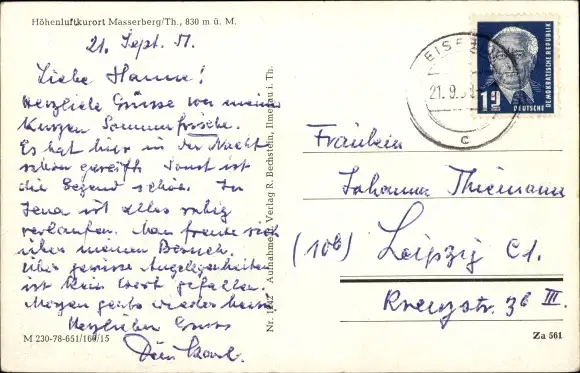 Höhenluftkurort Masserberg/Th., 830 m ü. M.
21. Sept. 51.
Liebe Hanne!
Herzliche Grüsse von meiner
kurzen Sommerfrische.
Es hat hier in der Nacht
schon gereift. Sonst ist
die Gegend schön. In
Jena ist alles ruhig
verlaufen. Man freute sich
über meinen Besuch.
Über gewisse Angelegenheiten
ist kein Wort gefallen.
Morgen geht's wieder heim
Herzlichen Gruss
Dein
M 230-78-651/160/15
Aufnahme u. Verlag R. Bechstein, Ilmenau i. Th.
Nr.
EISF
21.9.5
c
DEUTSCHE
DEMOKRATISCHE REPUBLIK
Fräulein
Johanna Thiemann
(10b) Leipzig C1.
Kreuzstr. 3b III.
Za 561